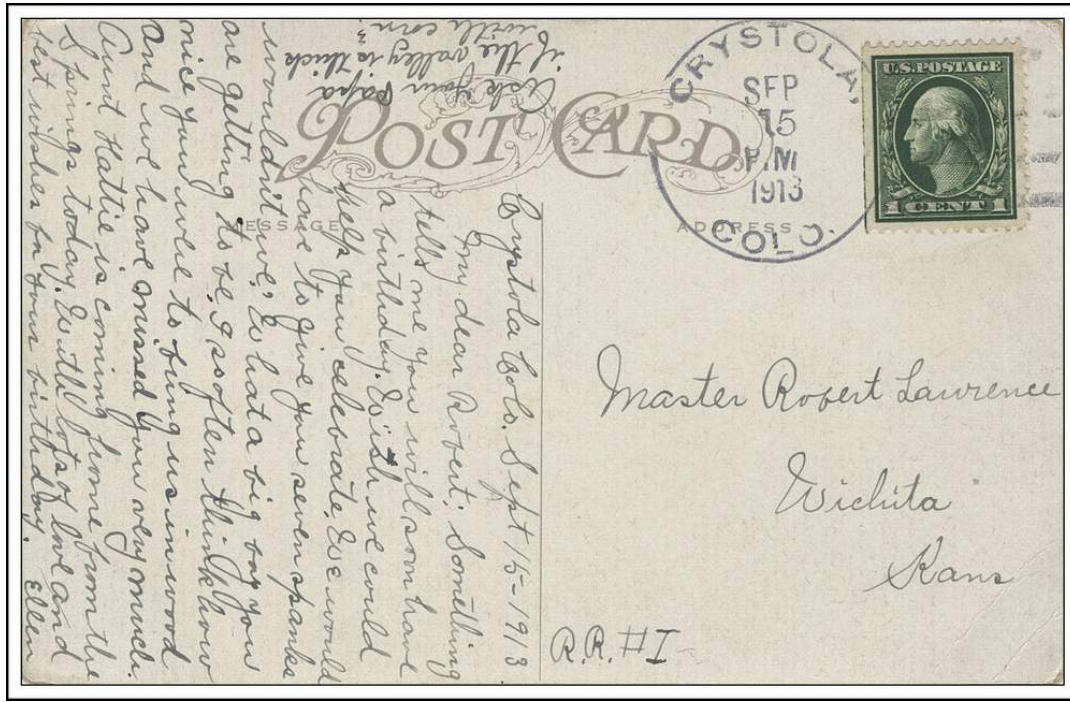 POST CARD
MESSAGE
ADDRESS
CRYSTOLA,
SEP
15
P.M
1913
COLO.
U.S. POSTAGE
1 CENT 1
Crystola Colo. Sept 15-1913
My dear Robert; Something
tells me you will soon have
a birthday. Wish we could
help you celebrate. We would
have to give you seven spanks
wouldn't we? What a big boy you
are getting to be. I so often think how
nice you were to bring us in wood
And we have missed you very much.
Aunt Hattie is coming home from the
Springs today. With lots of love and
best wishes for your birthday. Ellen
Ask your papa
if the valley is thick
with corn?
Master Robert Lawrence
Wichita
Kans
R.R. #1